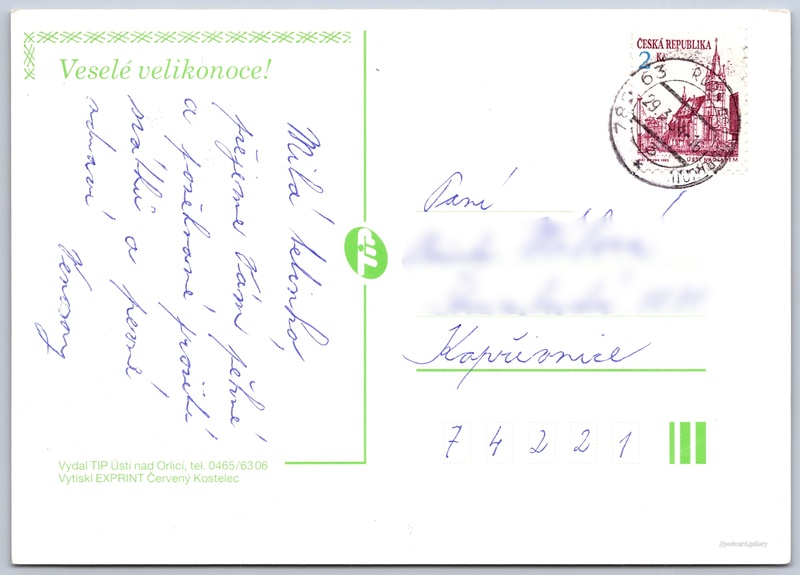 Veselé velikonoce!
Milá tetinko,
přejeme Vám pěkné
a požehnané prožití
svátků a pevné
zdraví.
Vydal TIP Ústí nad Orlicí, tel. 0465/6306
Vytiskl EXPRINT Červený Kostelec
ČESKÁ REPUBLIKA
2 Kč
ÚSTÍ NAD LABEM
29.3.
Paní
Kopřivnice
7 4 2 2 1
postcard.gallery